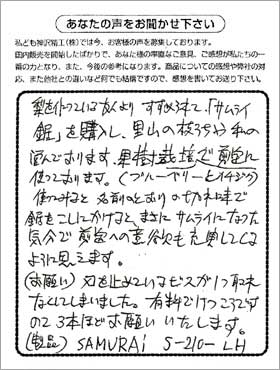 あなたの声をお聞かせ下さい
私ども神沢精工(株)では今、お客様の声を募集しております。
国内販売を開始したばかりで、あなた様の率直なご意見、ご感想が私たちの一
番の力となり、また、今後の参考になります。商品についての感想や弊社の対
応、また他社との違いなど何でも結構ですので、感想を書いてお送り下さい。
梨を作っている方より すすめられて、「サムライ
鋸」を購入し、里山の枝うちに 和の
しております。果樹栽培で剪定に
使っております。(ブルーベリーとイチジク)
使ってみると 名前のとおりの切れ味で
鋸をこしにかけると、まさにサムライになった
気分で 剪定への意欲も充実してくる
ように思えます。
(お願い) 刃を止めているビスが1つ取れ
なくしてしまいました。有料でけっこうです
ので 3本ほどお願いいたします。
(製品) SAMURAI S-210-LH